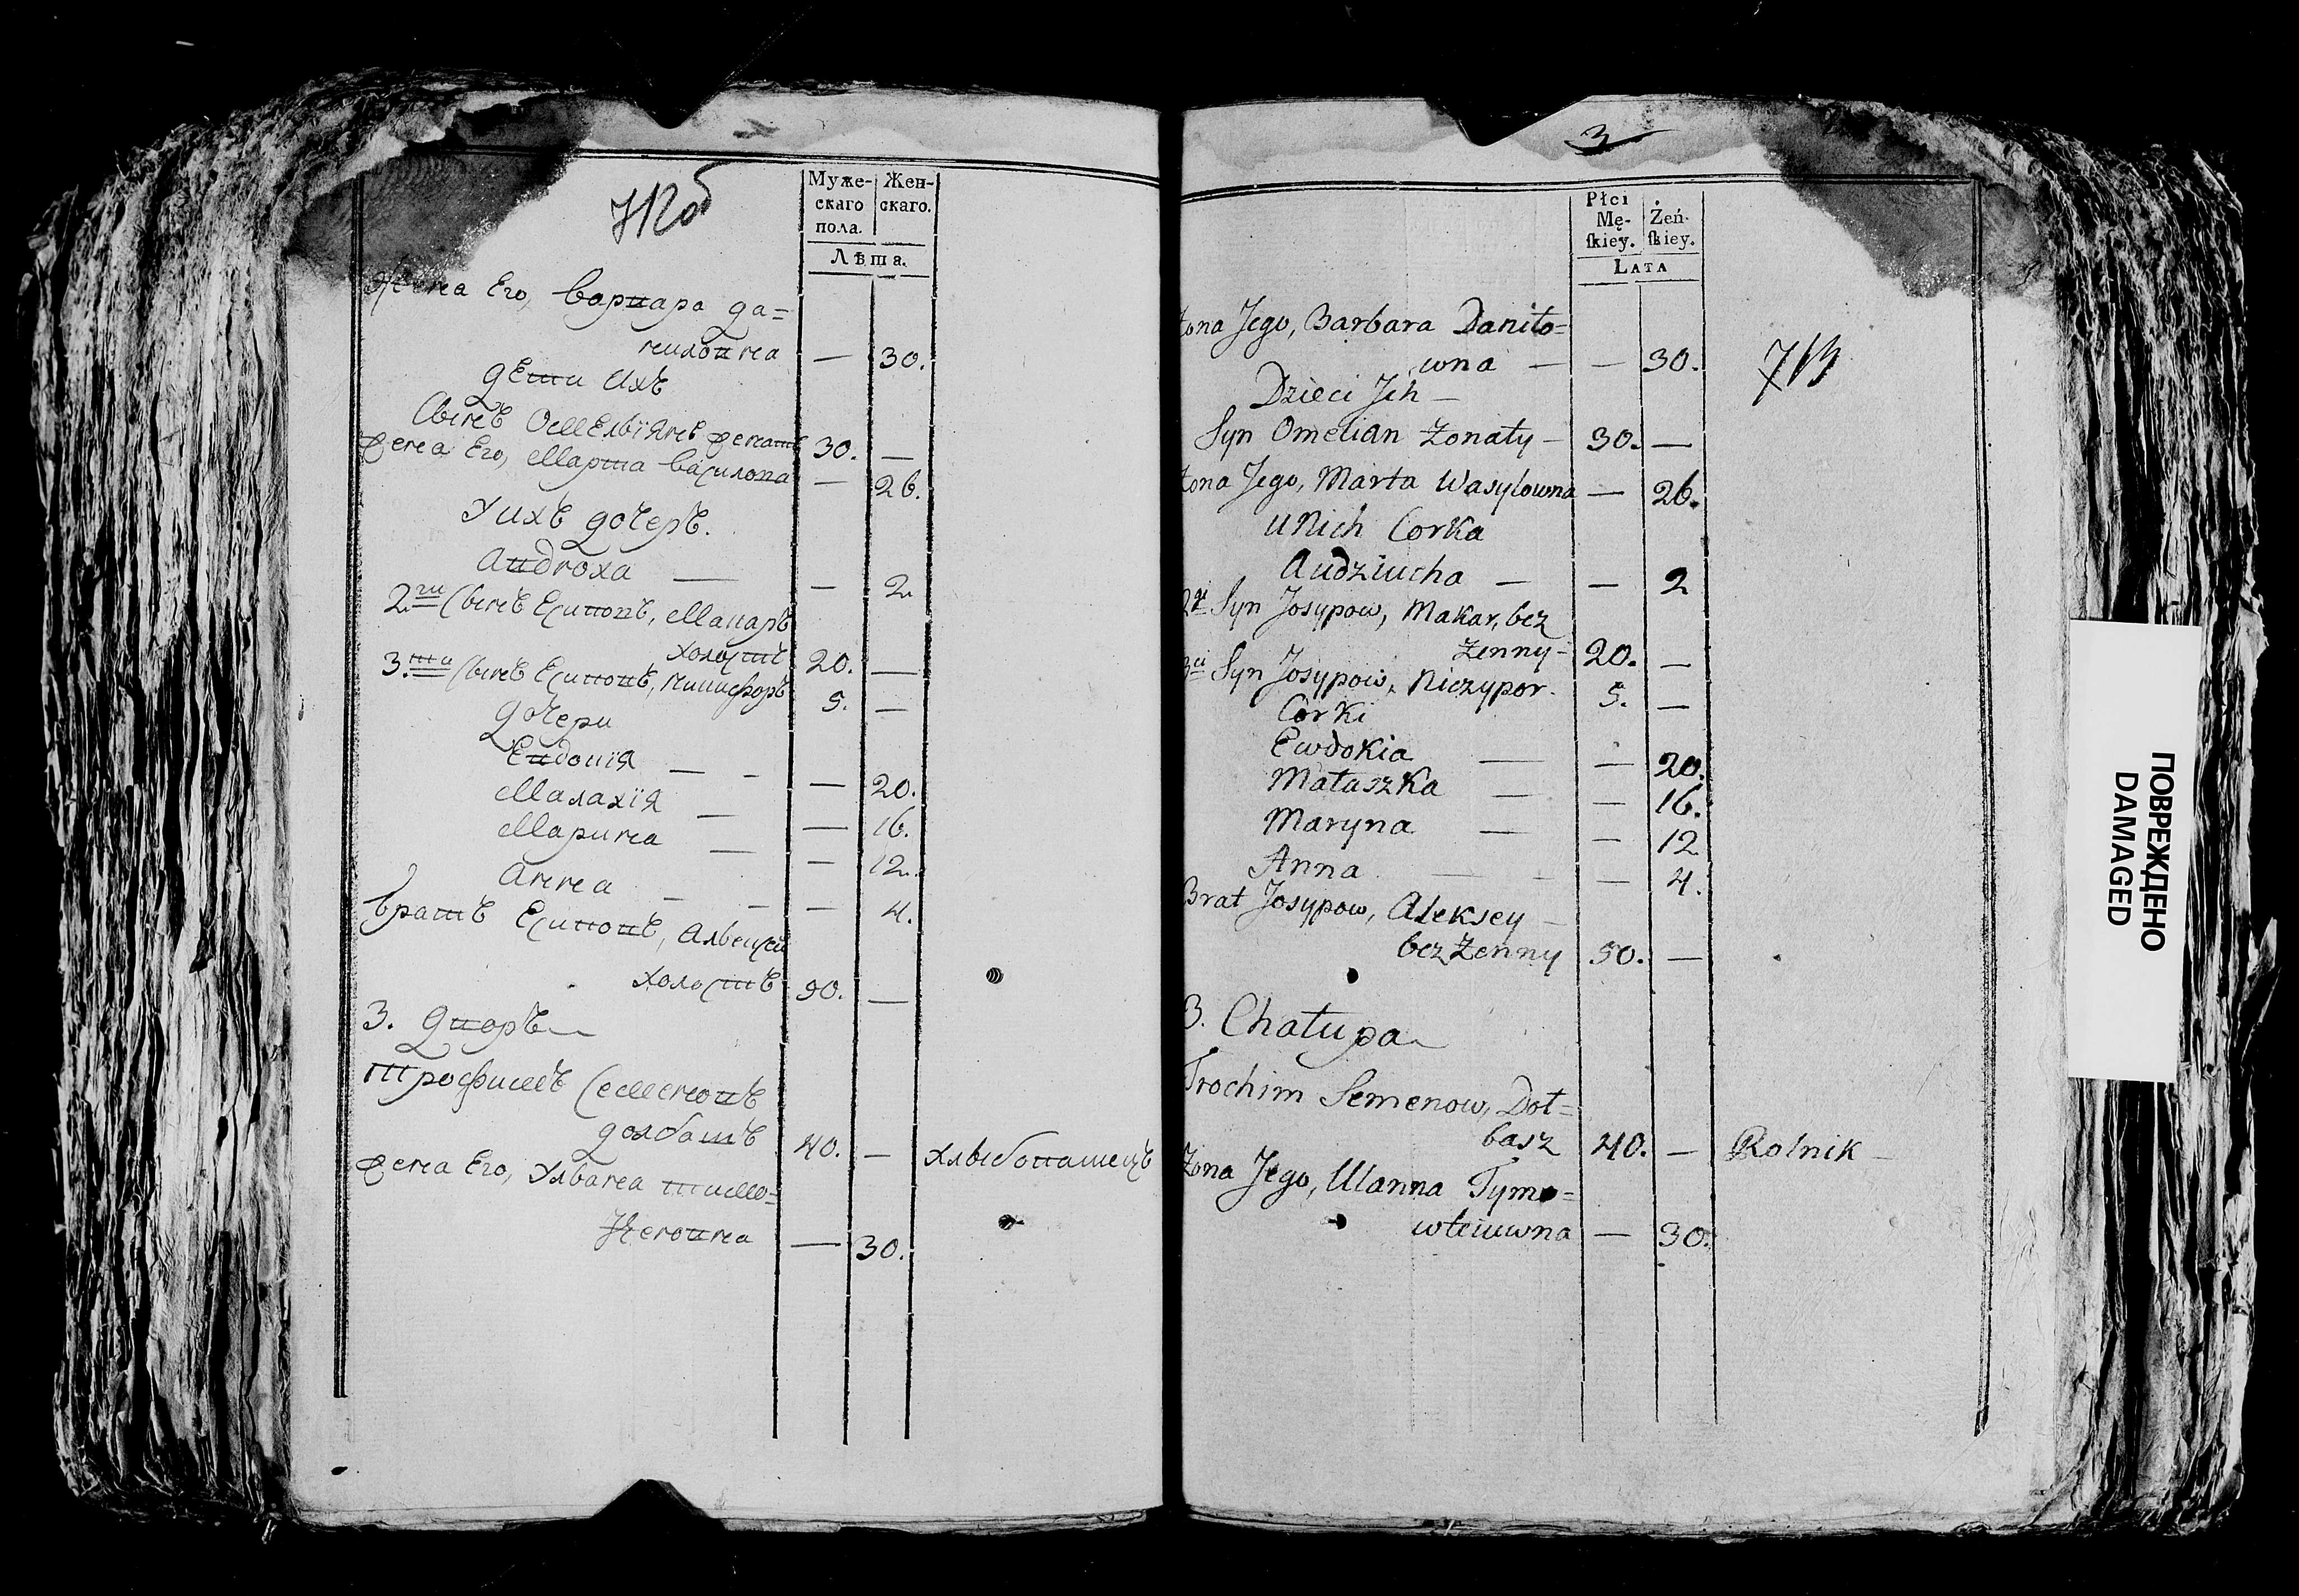 712об
Муже-
скаго
пола.
Жен-
скаго.
Лѣта.
Жена Его, варвара да=
ниловна — 30.
дети ихъ
Сынъ Омельянъ женатъ 30. —
жена Его, Марта василова — 26.
Уихъ дочеръ.
Авдюха — — 2.
2.ги Сынъ Есиповъ, Макаръ
холостъ 20. —
3.тти Сынъ Есиповъ, Никифоръ 5. —
дочери
Евдокія — - — 20.
Малахія — — 16.
Марина — — 12.
Анна — — — 4.
братъ Есиповъ, Алексей
холостъ 50. —
3. дворъ
Трофимъ Семеновъ
долбашъ 40. — хлыбопашецъ
жена Его, Ульана Тимо=
— 30.
3
Płci
Mę-
ſkiey.
Żeń-
ſkiey.
LATA
713
Żona Jego, Barbara Daniło=
wna — — 30.
Dzieci Jch —
Syn Omelian Żonaty — 30. —
Żona Jego, Marta Wasylowna — 26.
u Nich Corka
Audziucha — — 2
2gi Syn Josypow, Makar, bez
Żenny - 20. —
3ci Syn Josypow, Niczypor. 5. —
Corki
Ewdokia — — 20.
Małaszka — — 16.
Maryna — — 12
Anna — — — 4.
Brat Josypow, Aleksey —
bez Żenny 50. —
3. Chałupa
Trochim Semenow, Doł=
basz 40. — Rolnik —
Żona Jego, Ulanna Tymo=
— 30.
ПОВРЕЖДЕНО
DAMAGED